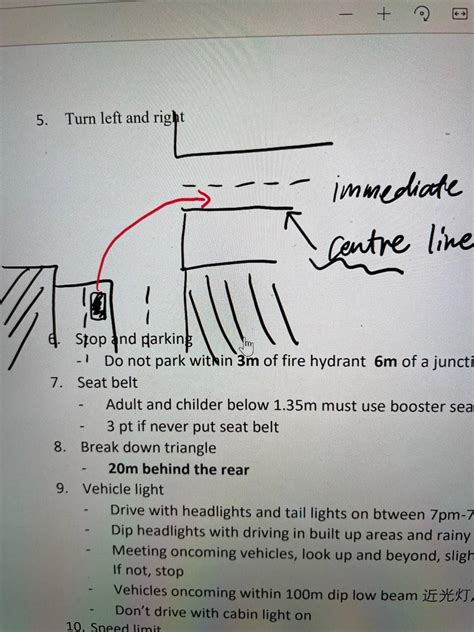 5. Turn left and right
immediate
centre line
6. Stop and parking
- Do not park within 3m of fire hydrant 6m of a juncti
7. Seat belt
- Adult and childer below 1.35m must use booster sea
- 3 pt if never put seat belt
8. Break down triangle
- 20m behind the rear
9. Vehicle light
- Drive with headlights and tail lights on btween 7pm-7
- Dip headlights with driving in built up areas and rainy
- Meeting oncoming vehicles, look up and beyond, sligh
If not, stop
- Vehicles oncoming within 100m dip low beam 近光灯,
- Don't drive with cabin light on
10. Speed limit